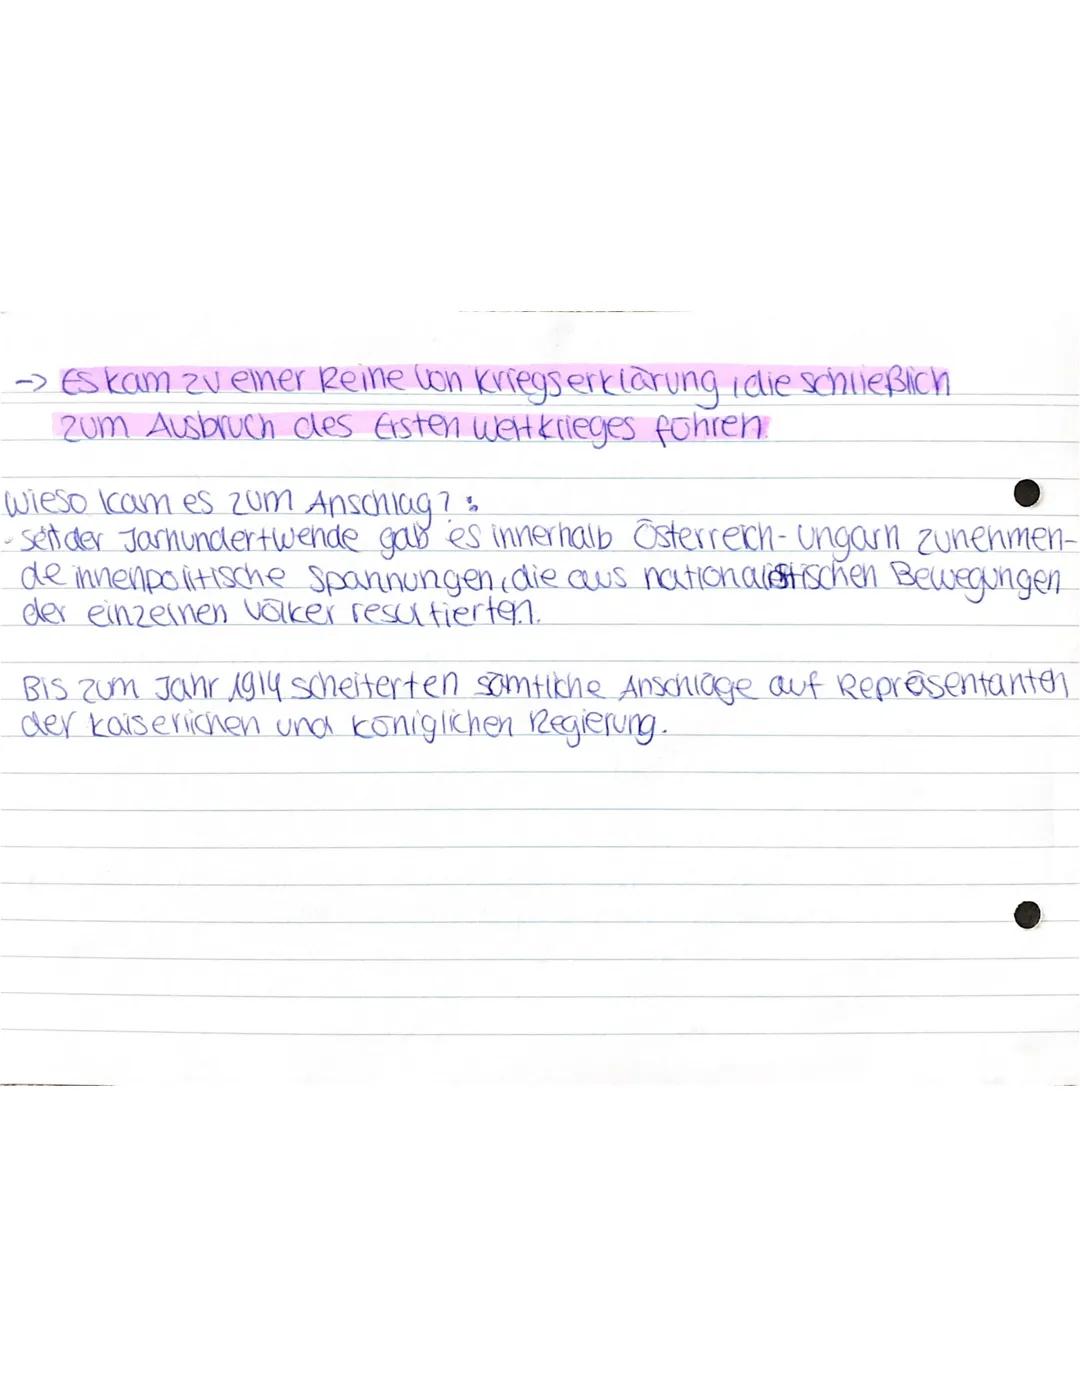 -> Es kam zu einer Reihe von Kriegserklärung, die schließlich
zum Ausbruch des Ersten Weltkrieges führen.
Wieso kam es zum Anschlag? :
- seit der Jarhundertwende gab es innerhalb Österreich-Ungarn zunehmen-
de innenpolitische Spannungen, die aus nationalistischen Bewegungen
der einzelnen Völker resultierten.
Bis zum Jahr 1914 scheiterten sämtliche Anschläge auf Repräsentanten
der kaiserlichen und königlichen Regierung.